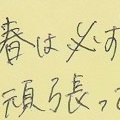 春は必ず
頑張って